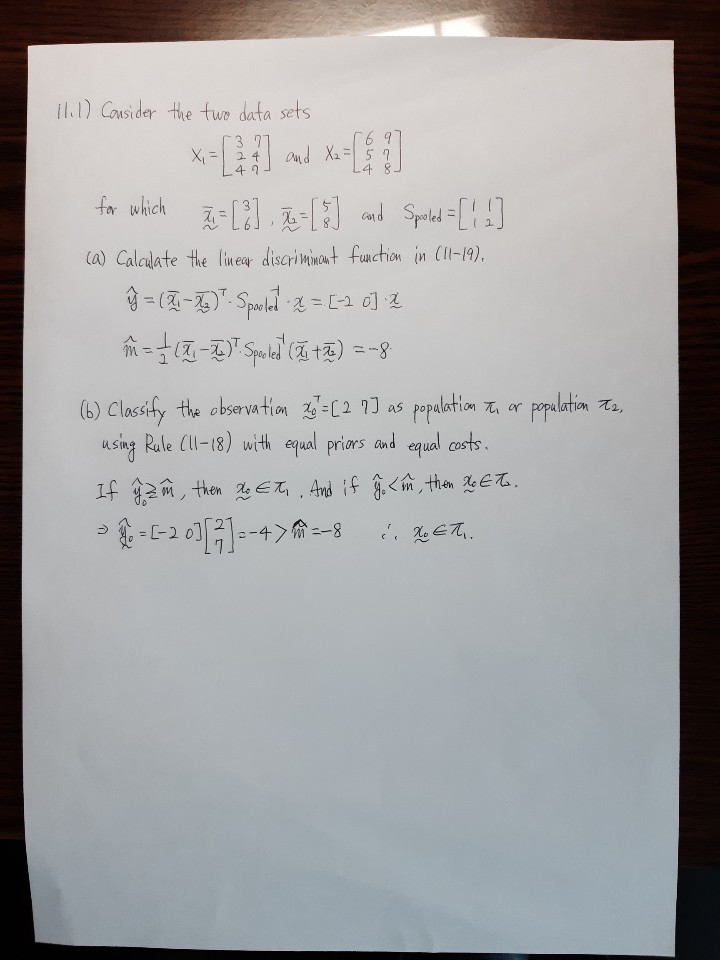 11.1) Consider the two data sets
X₁ = [3 7; 2 4; 4 7] and X₂ = [6 9; 5 7; 4 8]
for which x̄₁ = [3; 6], x̄₂ = [5; 8] and Spooled = [1 1; 1 2]
(a) Calculate the linear discriminant function in (11-19).
ŷ = (x̄₁ - x̄₂)ᵀ · Spooled⁻¹ · x = [-2 0] · x
m̂ = 1/2 (x̄₁ - x̄₂)ᵀ · Spooled⁻¹ (x̄₁ + x̄₂) = -8.
(b) Classify the observation x₀ᵀ = [2 7] as population π₁ or population π₂,
using Rule (11-18) with equal priors and equal costs.
If ŷ₀ ≧ m̂, then x₀ ∈ π₁. And if ŷ₀ < m̂, then x₀ ∈ π₂.
⇒ ŷ₀ = [-2 0] [2; 7] = -4 > m̂ = -8 ∴ x₀ ∈ π₁.